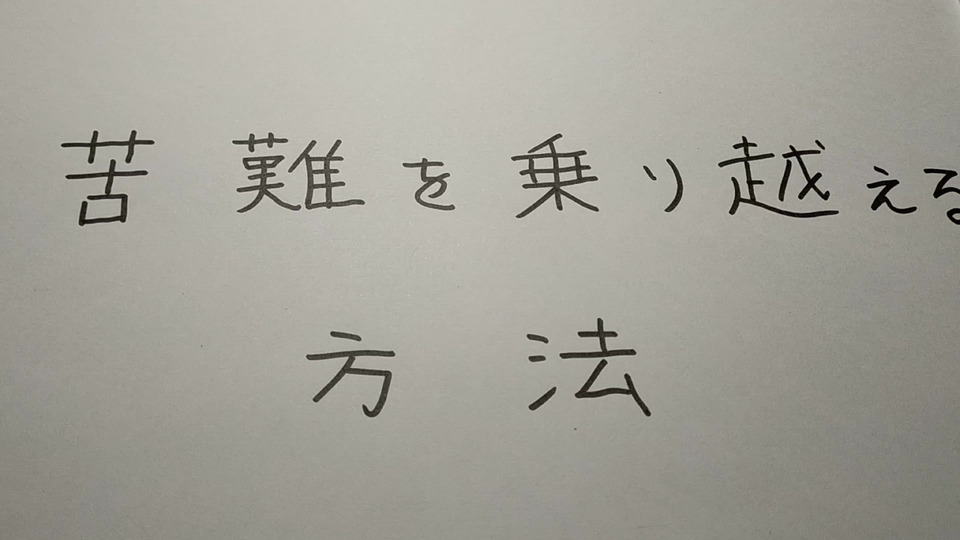 苦難を乗り越える
方法